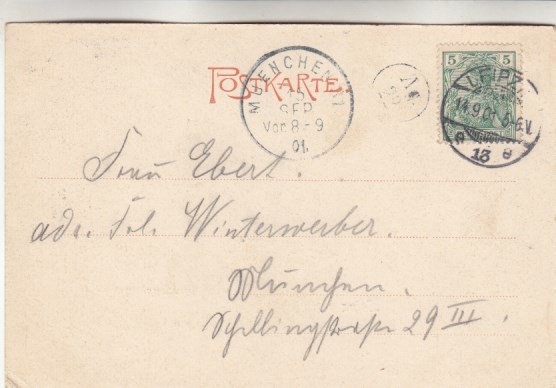 POSTKARTE.
MUENCHEN
15
SEP.
Vor. 8-9
01.
5 5
LEIPZ
14.9.01. 5-6V.
13
Frau Ebert.
adr. Frl. Winterwerber.
München.
Schellingstraße 29 III.